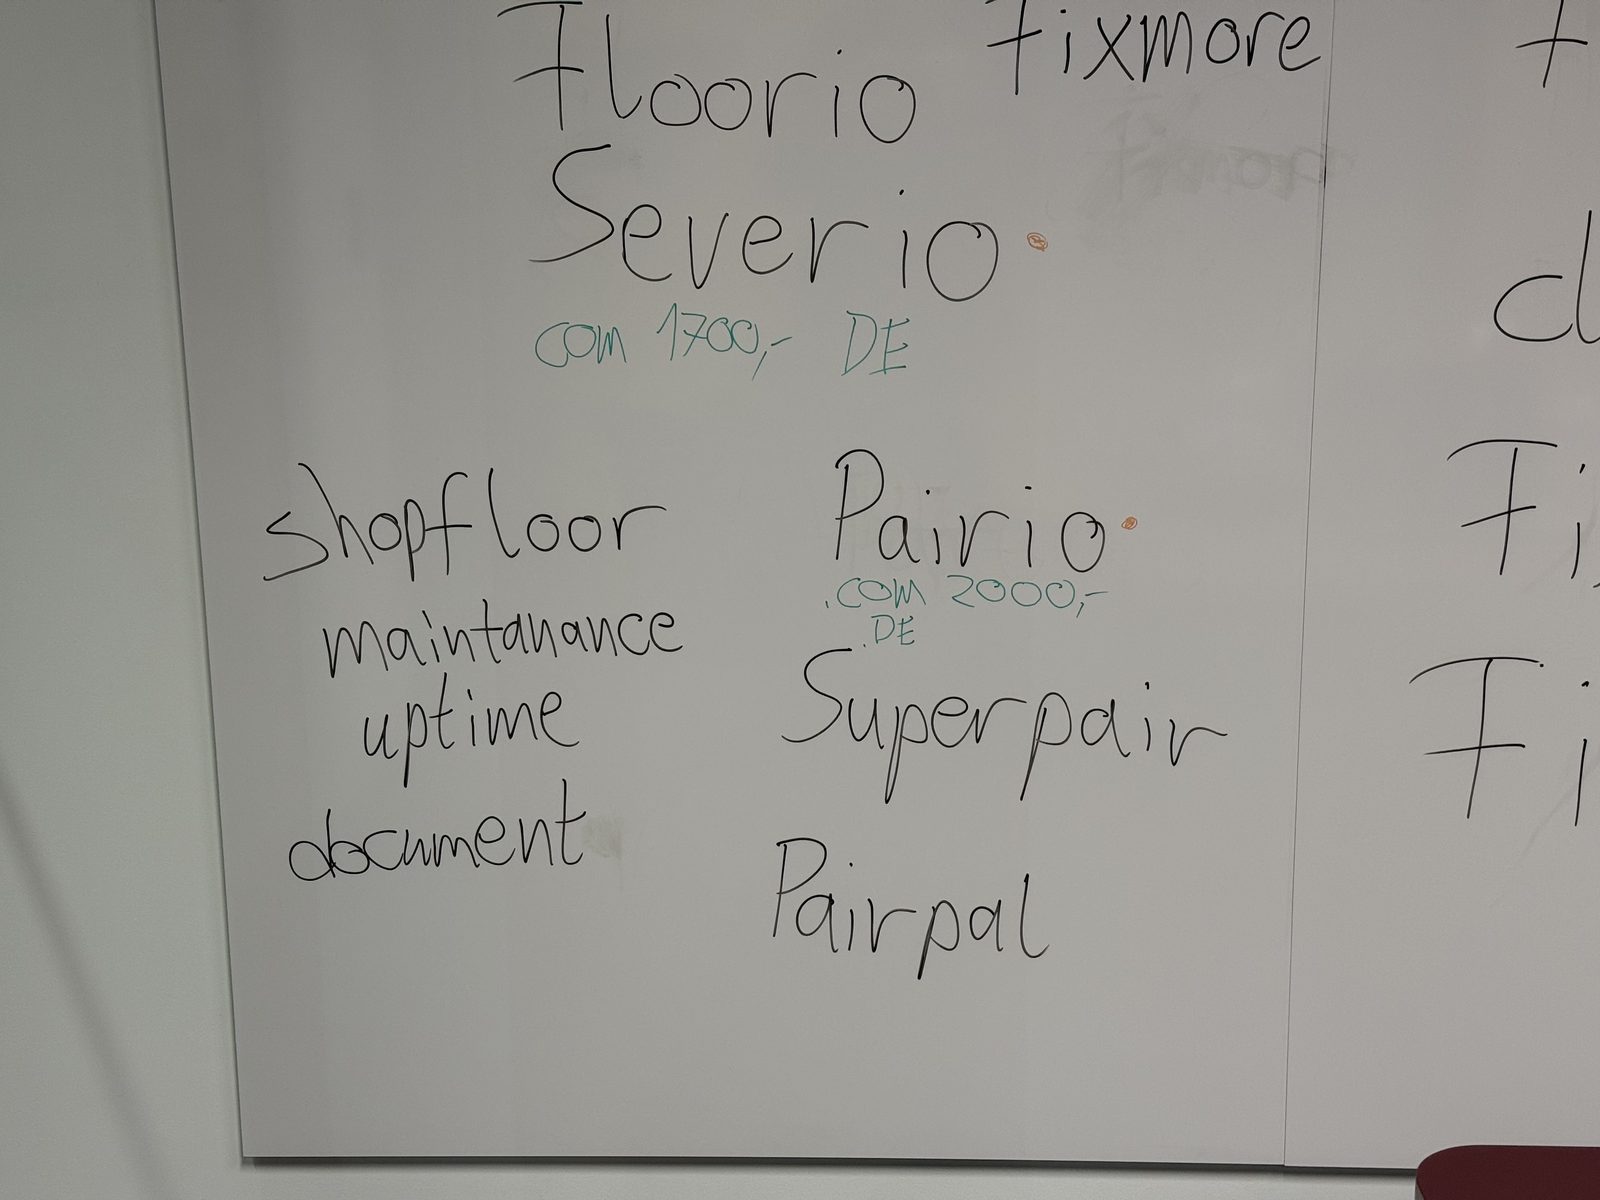 Floorio
Fixmore
Severio
com 1700,- DE
shopfloor
maintanance
uptime
document
Pairio
.com 2000,-
.DE
Superpair
Pairpal